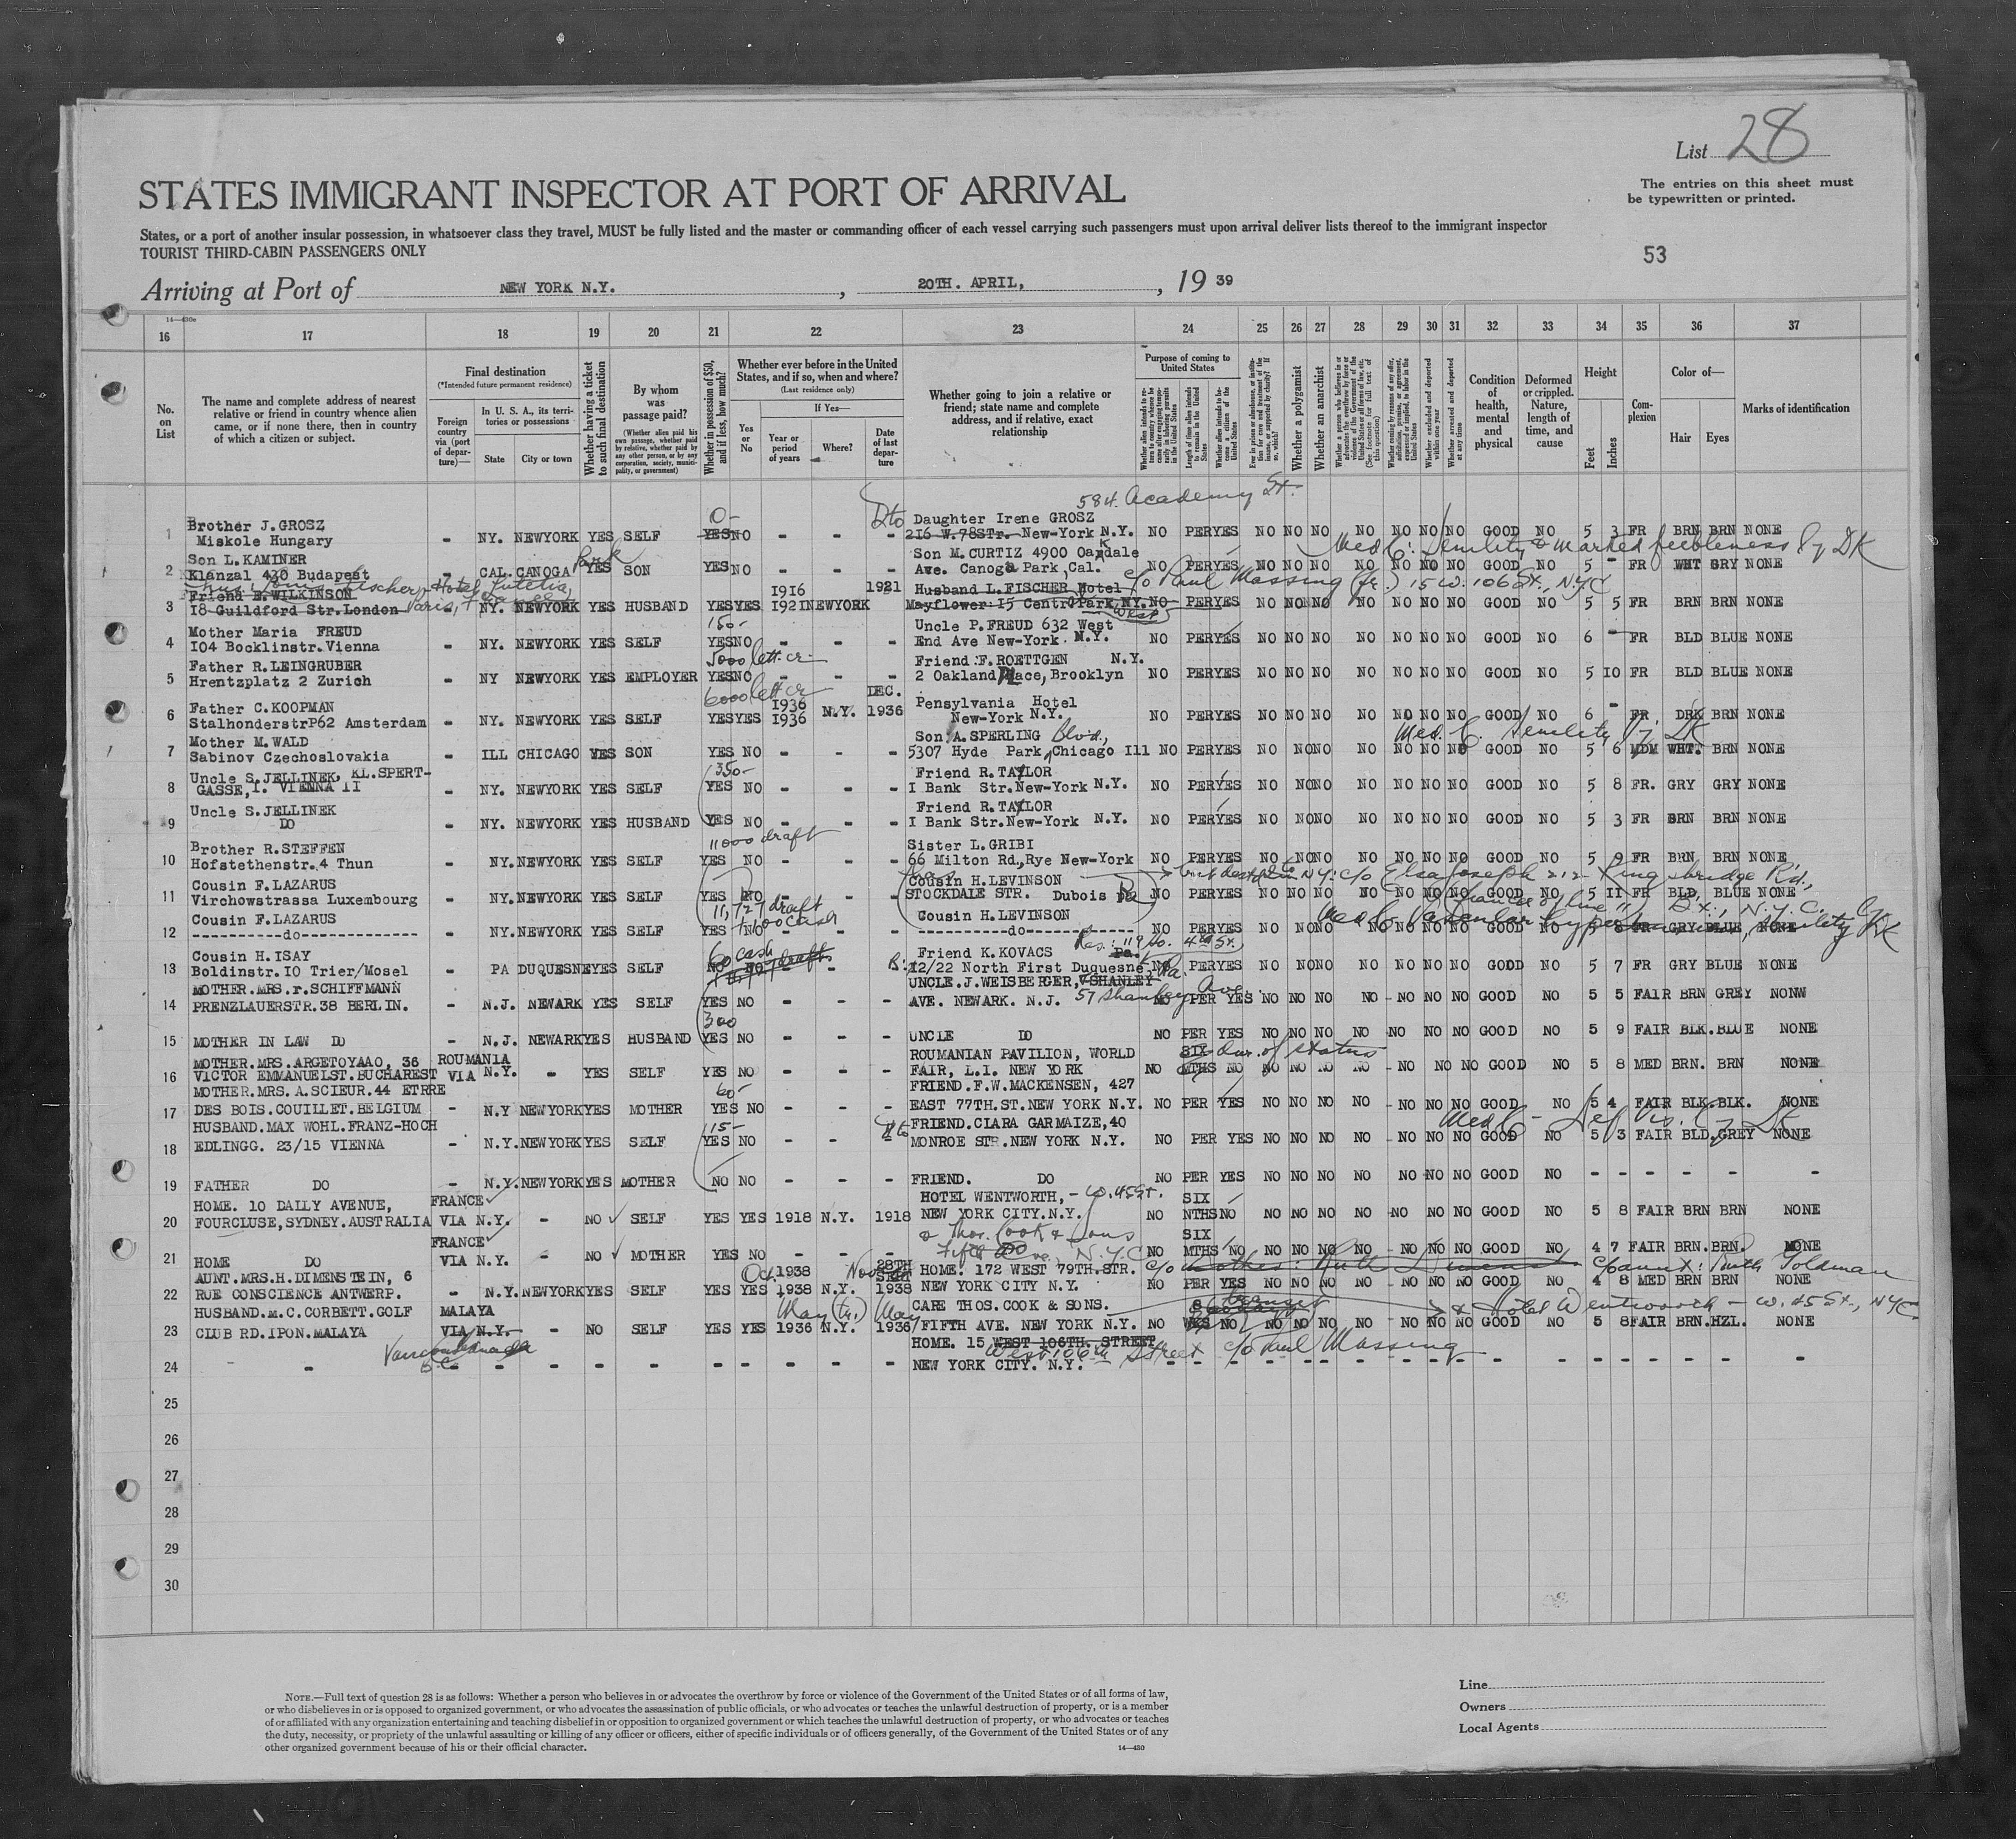 List 28
STATES IMMIGRANT INSPECTOR AT PORT OF ARRIVAL
The entries on this sheet must
be typewritten or printed.
States, or a port of another insular possession, in whatsoever class they travel, MUST be fully listed and the master or commanding officer of each vessel carrying such passengers must upon arrival deliver lists thereof to the immigrant inspector
TOURIST THIRD-CABIN PASSENGERS ONLY
53
Arriving at Port of NEW YORK N.Y. , 20TH. APRIL, , 19 39
16 17 18 19 20 21 22 23 24 25 26 27 28 29 30 31 32 33 34 35 36 37
No. on List
The name and complete address of nearest relative or friend in country whence alien came, or if none there, then in country of which a citizen or subject.
Final destination
(*Intended future permanent residence)
Foreign country via (port of departure)—
In U. S. A., its territories or possessions
State
City or town
Whether having a ticket to such final destination
By whom was passage paid?
(Whether alien paid his own passage, whether paid by relative, whether paid by any other person, or by any corporation, society, municipality, or government)
Whether in possession of $50, and if less, how much?
Whether ever before in the United States, and if so, when and where?
(Last residence only)
Yes or No
If Yes—
Year or period of years
Where?
Date of last departure
Whether going to join a relative or friend; state name and complete address, and if relative, exact relationship
Purpose of coming to United States
Whether a polygamist
Whether an anarchist
Condition of health, mental and physical
Deformed or crippled. Nature, length of time, and cause
Height
Feet
Inches
Complexion
Color of—
Hair
Eyes
Marks of identification
584 Academy St.
1 Brother J.GROSZ Daughter Irene GROSZ
Miskole Hungary - NY. NEWYORK YES SELF YES NO - - - 216 W.78Str. New-York N.Y. NO PER YES NO NO NO NO NO NO NO GOOD NO 5 3 FR BRN BRN NONE
Med C: Senility & marked feebleness by DK
2 Son L.KAMINER Son M.CURTIZ 4900 Oakdale
Klanzal 430 Budapest - CAL. CANOGA Park YES SON YES NO - - - Ave. Canoga Park, Cal. NO PER YES NO NO NO NO NO NO NO GOOD NO 5 - FR WHT GRY NONE
c/o Paul Massing (fr.) 15 W. 106 St., NYC
3 Friend E.WILKINSON 1916 1921 Husband L.FISCHER Hotel
18 Guildford Str.London NY. NEWYORK YES HUSBAND YES YES 1921 NEWYORK Mayflower:15 Central Park, NY. West NO PER YES NO NO NO NO NO NO NO GOOD NO 5 5 FR BRN BRN NONE
4 Mother Maria FREUD 150- Uncle P.FREUD 632 West
104 Bocklinstr.Vienna - NY. NEWYORK YES SELF YES NO - - - End Ave New-York N.Y. NO PER YES NO NO NO NO NO NO NO GOOD NO 6 - FR BLD BLUE NONE
5 Father R.LEINGRUBER 5000 lett. cr. Friend:F.ROETTGEN N.Y.
Hrentzplatz 2 Zurich - NY NEWYORK YES EMPLOYER YES NO - - - 2 Oakland Place, Brooklyn NO PER YES NO NO NO NO NO NO NO GOOD NO 5 10 FR BLD BLUE NONE
6 Father C.KOOPMAN 6000 lett cr 1936 DEC. Pensylvania Hotel
StalhonderstrP62 Amsterdam - NY. NEWYORK YES SELF YES YES 1936 N.Y. 1936 New-York N.Y. NO PER YES NO NO NO NO NO NO NO GOOD NO 6 - FR. DRK BRN NONE
Med. C. Senility by DK
7 Mother M.WALD Son:A.SPERLING Blvd.,
Sabinov Czechoslovakia - ILL CHICAGO YES SON YES NO - - - 5307 Hyde Park, Chicago Ill NO PER YES NO NO NO NO NO NO NO GOOD NO 5 6 MDM WHT. BRN NONE
8 Uncle S.JELLINEK, KL.SPERT- 350- Friend R.TAYLOR
GASSE, I. VIENNA II - NY. NEWYORK YES SELF YES NO - - - I Bank Str.New-York N.Y. NO PER YES NO NO NO NO NO NO NO GOOD NO 5 8 FR. GRY GRY NONE
9 Uncle S.JELLINEK Friend R.TAYLOR
DO - NY. NEWYORK YES HUSBAND YES NO - - - I Bank Str.New-York N.Y. NO PER YES NO NO NO NO NO NO NO GOOD NO 5 3 FR BRN BRN NONE
10 Brother R.STEFFEN 11000 draft Sister L.GRIBI
Hofstethenstr.4 Thun - NY. NEWYORK YES SELF YES NO - - - 66 Milton Rd.,Rye New-York NO PER YES NO NO NO NO NO NO NO GOOD NO 5 9 FR BRN BRN NONE
c/o Elsa Joseph 212 Kingsbridge Rd., Bx., N.Y.C.
11 Cousin F.LAZARUS Cousin H.LEVINSON
Virchowstrassa Luxembourg - NY. NEWYORK YES SELF YES NO - - - STOCKDALE STR. Dubois Pa NO PER YES NO NO NO NO NO NO NO GOOD NO 5 11 FR BLD, BLUE NONE
11,727 draft + 100 cash
12 Cousin F.LAZARUS Cousin H.LEVINSON
----------do------------- NY. NEWYORK YES SELF YES NO - - - ----------do------------- NO PER YES NO NO NO NO NO NO NO GOOD NO 5 8 FR GRY BLUE NONE
13 Cousin H.ISAY 60 cash Friend K.KOVACS Pa.
Boldinstr.10 Trier/Mosel - PA DUQUESNE YES SELF NO NO - - 12/22 North First Duquesne, Pa. NO PER YES NO NO NO NO NO NO NO GOOD NO 5 7 FR GRY BLUE NONE
14 MOTHER.MRS.r.SCHIFFMANN UNCLE.J.WEISBERGER, SHANLEY
PRENZLAUERSTR.38 BERLIN. - N.J. NEWARK YES SELF YES NO - - - AVE. NEWARK. N.J. 57 Shanley Ave. NO PER YES NO NO NO NO - NO NO NO GOOD NO 5 5 FAIR BRN GREY NONW
300
15 MOTHER IN LAW DO - N.J. NEWARK YES HUSBAND YES NO - - - UNCLE DO NO PER YES NO NO NO NO - NO NO NO GOOD NO 5 9 FAIR BLK.BLUE NONE
16 MOTHER.MRS.ARGETOYAAO, 36 ROUMANIA ROUMANIAN PAVILION, WORLD SIX dur. of status
VICTOR EMMANUELST.BUCHAREST VIA N.Y. - YES SELF YES NO - - - FAIR, L.I. NEW YORK NO MTHS NO NO NO NO NO - NO NO NO GOOD NO 5 8 MED BRN. BRN NONE
17 MOTHER.MRS.A.SCIEUR.44 ETRRE 60- FRIEND.F.W.MACKENSEN, 427
DES BOIS.COUILLET.BELGIUM - N.Y NEWYORK YES MOTHER YES NO - - - EAST 77TH.ST.NEW YORK N.Y. NO PER YES NO NO NO NO - NO NO NO GOOD NO 5 4 FAIR BLK.BLK. NONE
18 HUSBAND.MAX WOHL.FRANZ-HOCH 115- FRIEND.CIARA GARMAIZE,40
EDLINGG. 23/15 VIENNA - N.Y. NEWYORK YES SELF YES NO - - MONROE STR.NEW YORK N.Y. NO PER YES NO NO NO NO - NO NO NO GOOD NO 5 3 FAIR BLD.GREY NONE
19 FATHER DO - N.Y. NEWYORK YES MOTHER NO NO - - - FRIEND. DO NO PER YES NO NO NO NO - NO NO NO GOOD NO - - - - - -
20 HOME. 10 DAILY AVENUE, FRANCE HOTEL WENTWORTH, - W. 45 St. SIX
FOURCLUSE,SYDNEY.AUSTRALIA VIA N.Y. - NO SELF YES YES 1918 N.Y. 1918 NEW YORK CITY.N.Y. NO NTHS NO NO NO NO NO - NO NO NO GOOD NO 5 8 FAIR BRN BRN NONE
FRANCE & Thos. Cook & Sons SIX
21 HOME DO VIA N.Y. - NO MOTHER YES NO - - - Fifth Ave, N.Y.C NO MTHS NO NO NO NO NO - NO NO NO GOOD NO 4 7 FAIR BRN.BRN. NONE
22 AUNT.MRS.H.DIMENSTEIN, 6 Oct 1938 Nov 28TH SEPT HOME. 172 WEST 79TH.STR. c/o aunt: Ruth Goldman
RUE CONSCIENCE ANTWERP. - N.Y. NEWYORK YES SELF YES YES 1938 N.Y. 1938 NEW YORK CITY N.Y. NO PER YES NO NO NO NO - NO NO NO GOOD NO 4 8 MED BRN BRN NONE
23 HUSBAND.M.C.CORBETT.GOLF MALAYA May (tr.) May CARE THOS. COOK & SONS. & Hotel Wentworth - W. 45 St., NYC
CLUB RD.IPON.MALAYA VIA N.Y. - NO SELF YES YES 1936 N.Y. 1936 FIFTH AVE. NEW YORK N.Y. NO NO NO NO NO NO - NO NO NO GOOD NO 5 8 FAIR BRN.HZL. NONE
Vancouver B.C. Canada HOME. 15 WEST 106TH. STREET
West 106th Street c/o Paul Massing
24 - - - - - - - - - - NEW YORK CITY. N.Y. - - - - - - - - - - - - - - - -
25
26
27
28
29
30
NOTE.—Full text of question 28 is as follows: Whether a person who believes in or advocates the overthrow by force or violence of the Government of the United States or of all forms of law,
or who disbelieves in or is opposed to organized government, or who advocates the assassination of public officials, or who advocates or teaches the unlawful destruction of property, or is a member
of or affiliated with any organization entertaining and teaching disbelief in or opposition to organized government or which teaches the unlawful destruction of property, or who advocates or teaches
the duty, necessity, or propriety of the unlawful assaulting or killing of any officer or officers, either of specific individuals or of officers generally, of the Government of the United States or of any
other organized government because of his or their official character.
14—430
Line
Owners
Local Agents